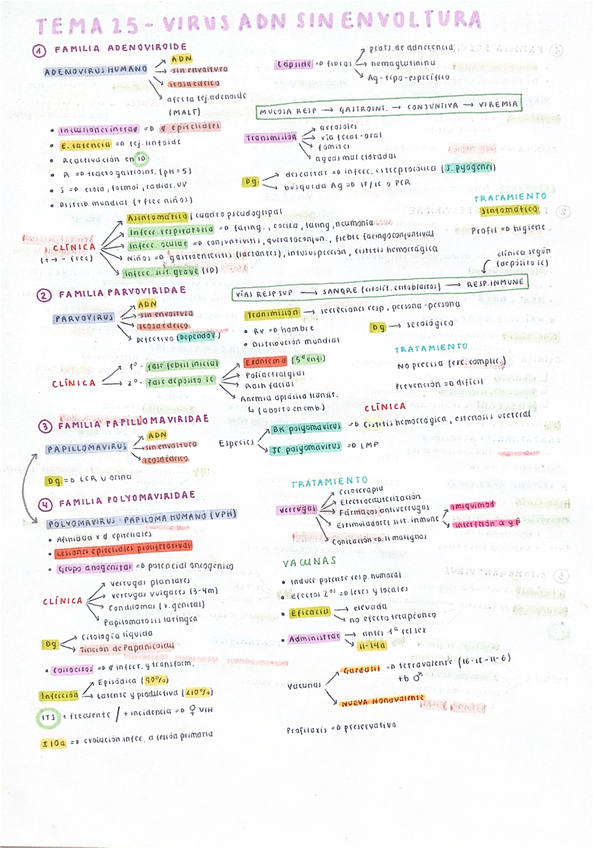 TEMA 25 - VIRUS ADN SIN ENVOLTURA
1 FAMILIA ADENOVIROIDE
ADENOVIRUS HUMANO → ADN
→ sin envoltura
→ icosaédrico
→ afecta tej. adenoide
(MALT)
Cápside => fibras → prots. de adherencia
→ hemaglutinina
→ Ag-tipo-específico
MUCOSA RESP → GASTROINT. → CONJUNTIVA → VIREMIA
• Inclusiones intranc => epiteliales
• E. latencia => tej. linfoide
• Reactivación en ID
• R => tracto gastroint. (pH = 5)
• S => cloro, formol, radiac. UV
• Distrib. mundial (+ frec niños)
Transmisión → aerosoles
→ vía fecal-oral
→ fómites
→ aguas mal cloradas
Dg → descartar => infecc. estreptocócica (S. pyogenes)
→ búsqueda Ag => IF/IC o PCR
CLÍNICA
(+ → - frec)
Asintomática / cuadro pseudogripal
Infecc. respiratoria => faring., coriza, laring, neumonía
Infecc. ocular => conjuntivitis, queratoconjun., fiebre faringoconjuntival
Niños => gastroenteritis (lactantes), intususpección, cistitis hemorrágica
Infecc. sist. grave (ID)
TRATAMIENTO
Sintomático
Profil => higiene
2 FAMILIA PARVOVIRIDAE
PARVOVIRUS → ADN
→ sin envoltura
→ icosaédrico
→ Defectivo (Dependov.)
VÍAS RESP SUP → SANGRE (eritroblastos) → RESP. INMUNE
clínica según
(depósito IC)
Transmisión → secreciones resp, persona-persona
• RV => hombre
• Distribución mundial
Dg → serológico
CLÍNICA → 1º - fase febril inicial
→ 2º - fase depósito IC
→ Exantema (5ª enf.)
→ Poliartralgias
→ Rash facial
→ Anemia aplásica transit.
↳ (aborto emb.)
TRATAMIENTO
No precisa (exc. complic.)
Prevención => difícil
3 FAMILIA PAPILLOMAVIRIDAE
PAPILLOMAVIRUS → ADN
→ sin envoltura
→ icosaédrico
Dg => LCR u orina
Especies → BK polyomavirus
→ JC polyomavirus => LMP
CLÍNICA
Cistitis hemorrágica, estenosis ureteral
4 FAMILIA POLYOMAVIRIDAE
POLYOMAVIRUS - PAPILOMA HUMANO (VPH)
• Afinidad x epiteliales
• Lesiones epiteliales proliferativas
• Grupo anogenital => potencial oncogénico
CLÍNICA → verrugas plantares
→ verrugas vulgares (3-4m)
→ Condilomas (v. genital)
→ Papilomatosis laríngea
Dg → Citología líquida
→ Tinción de Papanicolau
• Coilocitos => infecc. y transform.
Infección → Episódica (90%)
→ Latente y productiva (<10%)
ITS + frecuente / + incidencia => ♀ VIH
≥10a => evolución infecc. a lesión primaria
TRATAMIENTO
Verrugas → Crioterapia
→ Electrocauterización
→ Fármacos antiverrugas
→ Estimuladores sist. inmune → imiquimod
→ interferón α y β
→ Conización => malignas
VACUNAS
• Induce potente resp. humoral
• Efectos 2os => leves y locales
• Eficacia → elevada
→ no efecto terapéutico
• Administrac → antes 1ª rel sex
→ 11-14a
Vacunas → Gardasil => tetravalente (16-18-11-6)
tb ♂
→ NUEVA Nonavalente
Profilaxis => preservativo